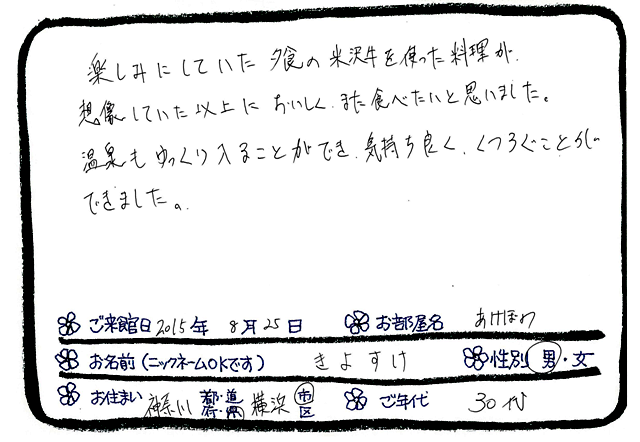 楽しみにしていた夕食の米沢牛を使った料理が、
想像していた以上においしく、また食べたいと思いました。
温泉もゆっくり入ることができ、気持ち良く、くつろぐことが
できました。
ご来館日 2015年 8月25日 お部屋名 あけぼの
お名前(ニックネームOKです) きよすけ 性別 男・女
お住まい 神奈川 都・道・府・県 横浜 市 区 ご年代 30代